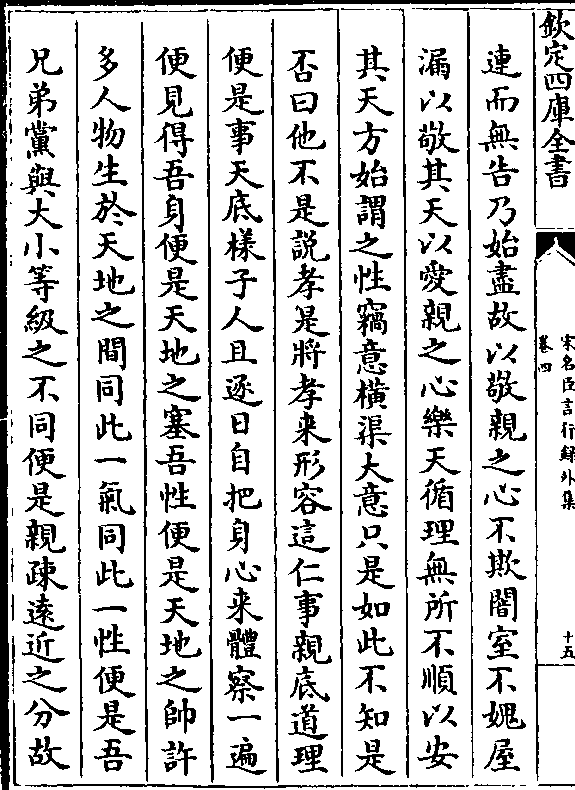 欽定四庫全書
宋名臣言行録外集
卷四
十五
連而無告乃始盡故以敬親之心不欺闇室不媿屋
漏以敬其天以愛親之心樂天循理無所不順以安
其天方始謂之性竊意橫渠大意只是如此不知是
否曰他不是説孝是將孝来形容這仁事親底道理
便是事天底樣子人且逐日自把身心来體察一遍
便見得吾身便是天地之塞吾性便是天地之帥許
多人物生於天地之間同此一氣同此一性便是吾
兄弟黨與大小等級之不同便是親疎逺近之分故